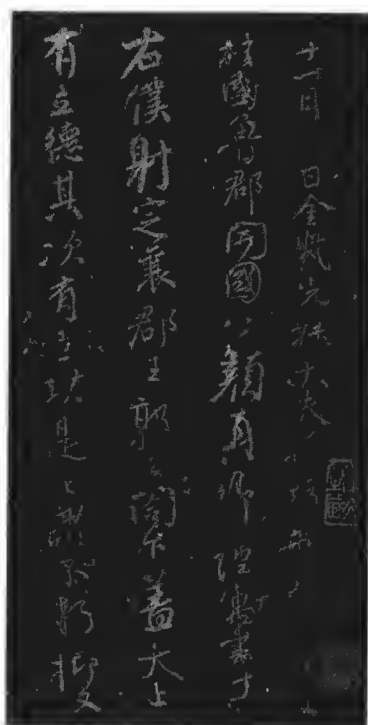 十一月 日金紫光祿大夫
國魯郡開國公顏真卿謹寓書于
右僕射定襄郡王郭公閤下蓋太上
有立德其次有立功是之謂不朽抑又